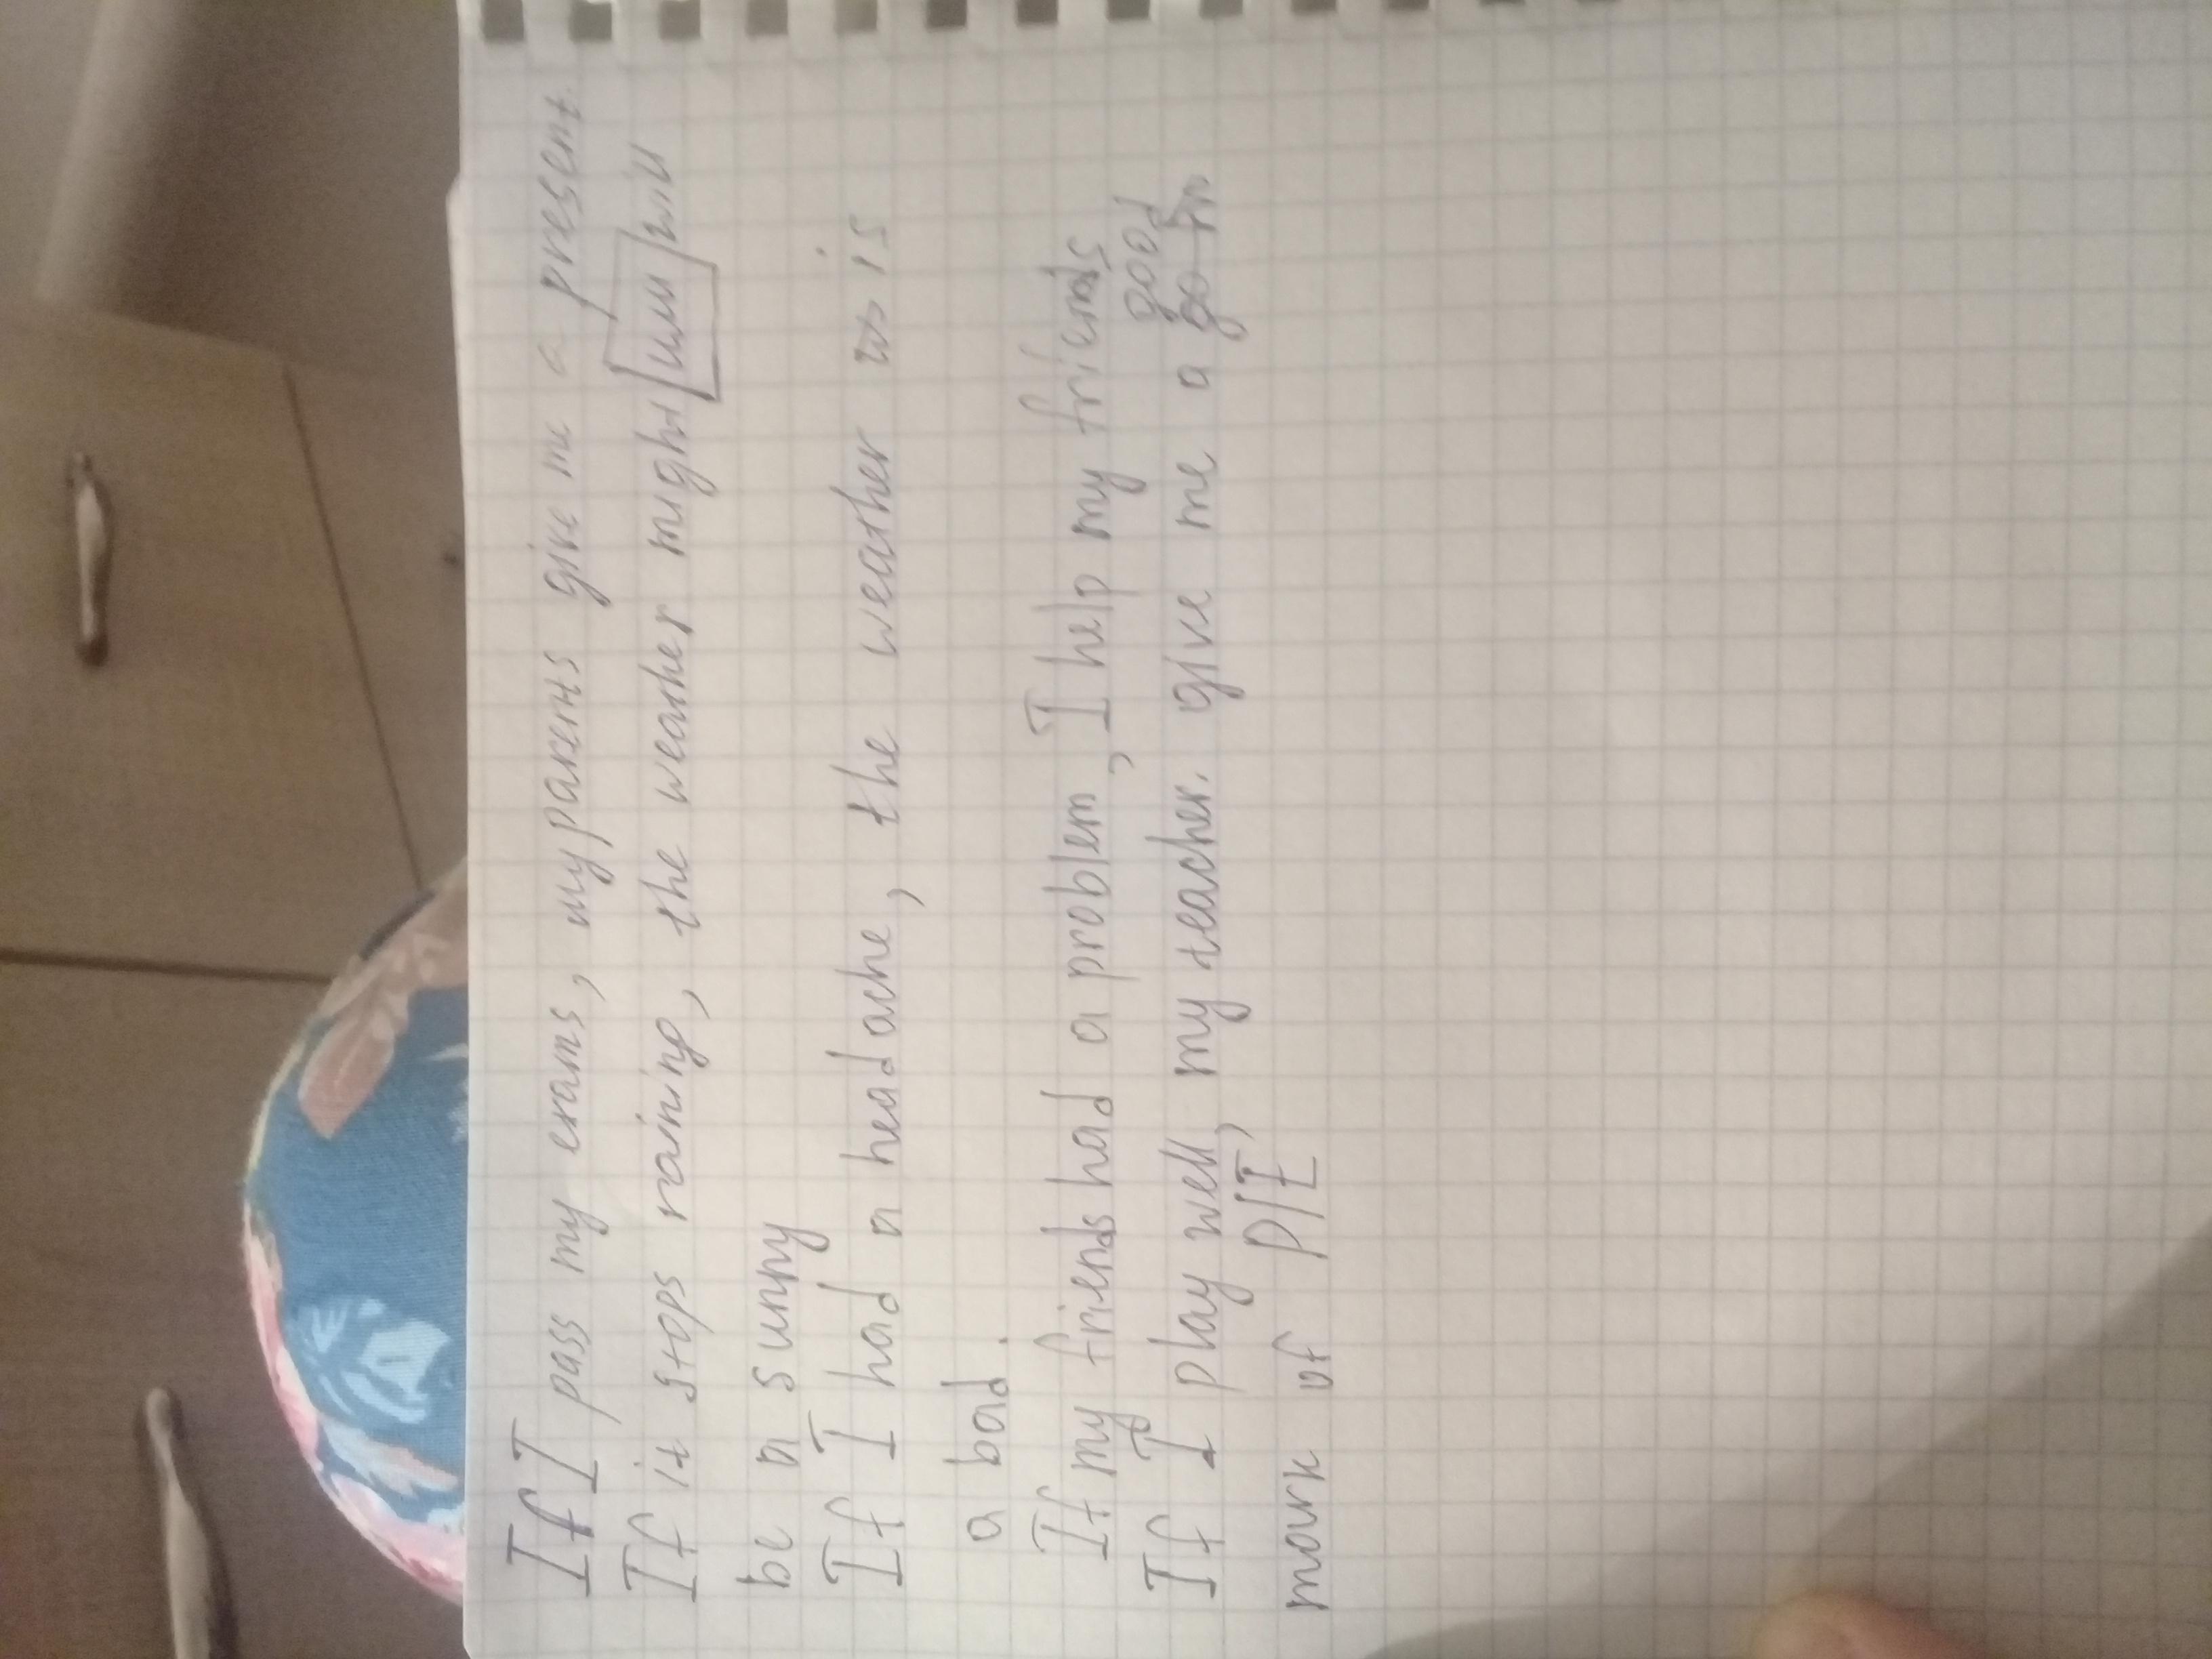 If I pass my exams, my parents give me a present.
If it stops raining, the weather might [или] will
be a sunny
If I had a headache, the weather is
a bad.
If my friends had a problem, I help my friends
If I play well, my teacher. give me a good
mark of P/E